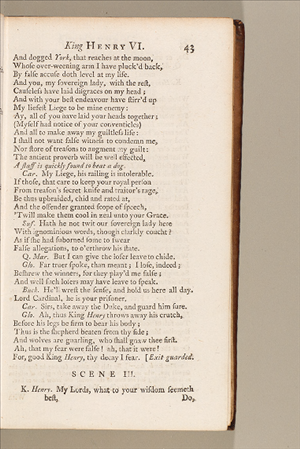 King HENRY VI. 43
And dogged York, that reaches at the moon,
Whose over-weening arm I have pluck'd back,
By false accuse doth level at my life.
And you, my sovereign lady, with the rest,
Causeless have laid disgraces on my head;
And with your best endeavour have stirr'd up
My liefest Liege to be mine enemy:
Ay, all of you have laid your heads together;
(Myself had notice of your conventicles)
And all to make away my guiltless life:
I shall not want false witness to condemn me,
Nor store of treasons to augment my guilt:
The antient proverb will be well effected,
A staff is quickly found to beat a dog.
Car. My Liege, his railing is intolerable.
If those, that care to keep your royal person
From treason's secret knife and traitor's rage,
Be thus upbraided, chid and rated at,
And the offender granted scope of speech,
'Twill make them cool in zeal unto your Grace.
Suf. Hath he not twit our sovereign lady here
With ignominious words, though clarkly coucht?
As if she had suborned some to swear
False allegations, to o'erthrow his state.
Q. Mar. But I can give the loser leave to chide.
Glo. Far truer spoke, than meant; I lose, indeed;
Beshrew the winners, for they play'd me false;
And well such losers may have leave to speak.
Buck. He'll wrest the sense, and hold us here all day.
Lord Cardinal, he is your prisoner.
Car. Sirs, take away the Duke, and guard him sure.
Glo. Ah, thus King Henry throws away his crutch,
Before his legs be firm to bear his body;
Thus is the shepherd beaten from thy side;
And wolves are gnarling, who shall gnaw thee first.
Ah, that my fear were false! ah, that it were!
For, good King Henry, thy decay I fear. [Exit guarded.
SCENE III.
K. Henry. My Lords, what to your wisdom seemeth
best, Do,